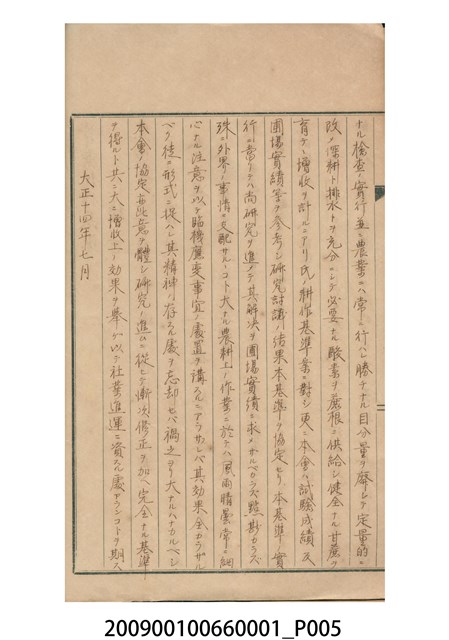 ナル檢査ノ實行並ニ農業ニハ常ニ行ハレ勝チナル目分量ヲ廢シテ定量的ニ
改メ深耕ト排水トヲ充分ニシテ必要ナル酸素ヲ蔗根ニ供給シ健全ナル甘蔗ヲ
育テ増收ヲ計ルニアリ氏ノ耕作基準案ニ對シ更ニ本會ハ試驗成績及
圃場實績等ヲ參考シ研究討議ノ結果本基準ヲ協定セリ本基準ノ實
行ニ當リテハ尚研究ヲ進メテ其解決ヲ圃場實績ニ求メザルベカラズ點尠カラズ
殊ニ外界ノ事情ニ支配サルヽコト大ナル農耕上ノ作業ニ於テハ風雨晴曇常ニ細
心ナル注意ヲ以テ臨機應變事宜ノ處置ヲ講ズルニアラザレバ其効果全カラザル
ベク徒ニ形式ニ捉ハレ其精神ノ存スル處ヲ忘却セバ禍之ヨリ大ナルハナカルベシ
本會ノ協定亦此意ヲ體シ研究ノ進ムニ從ヒテ漸次修正ヲ加ヘ完全ナル基準
ヲ得ルト共ニ大ニ增收上ノ効果ヲ擧ゲ以テ社業進運ニ資スル處アランコトヲ期ス
大正十四年七月
200900100660001_P005